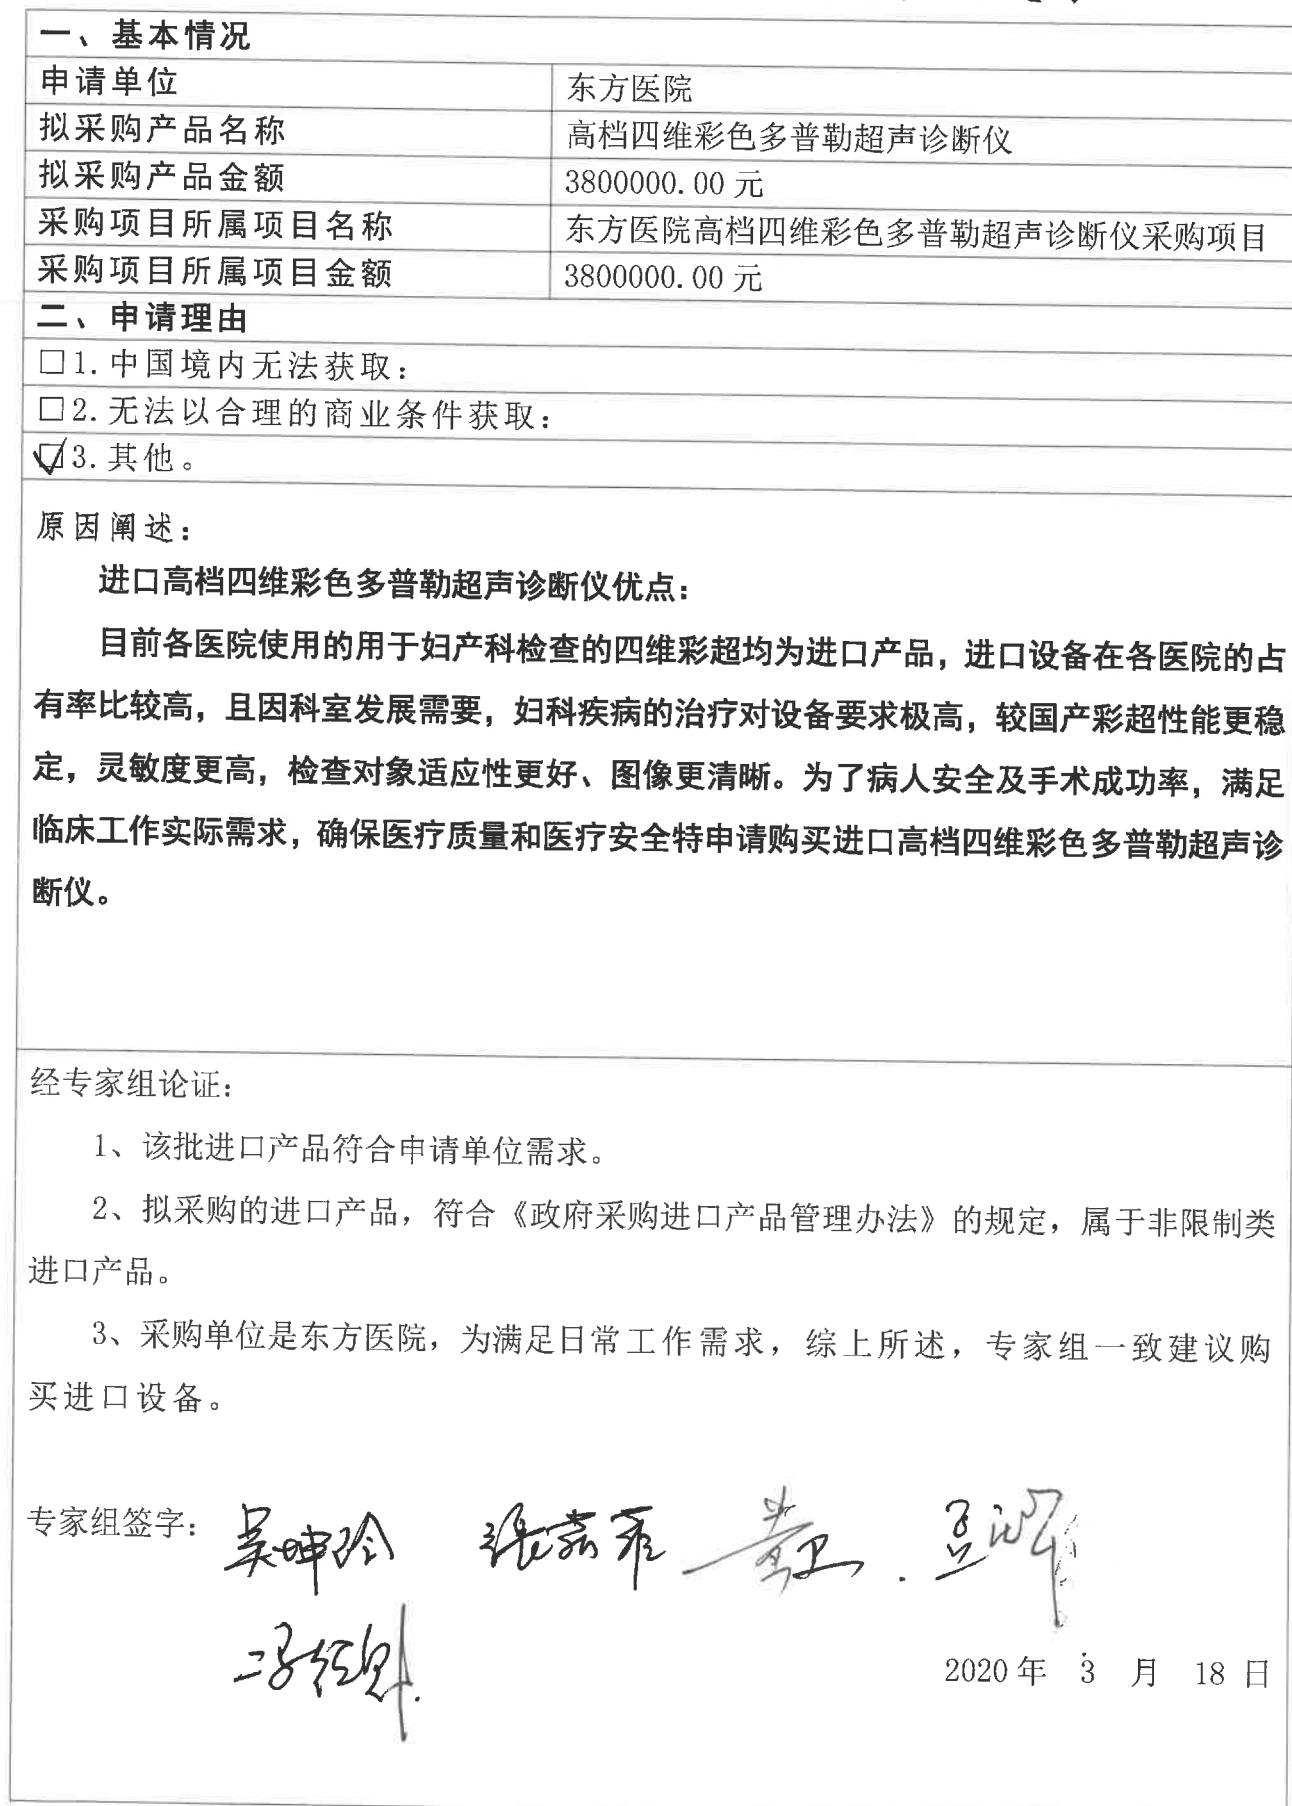 一、基本情况
申请单位 东方医院
拟采购产品名称 高档四维彩色多普勒超声诊断仪
拟采购产品金额 3800000.00 元
采购项目所属项目名称 东方医院高档四维彩色多普勒超声诊断仪采购项目
采购项目所属项目金额 3800000.00 元
二、申请理由
□1. 中国境内无法获取：
□2. 无法以合理的商业条件获取：
☑3. 其他。
原因阐述：
进口高档四维彩色多普勒超声诊断仪优点：
目前各医院使用的用于妇产科检查的四维彩超均为进口产品，进口设备在各医院的占
有率比较高，且因科室发展需要，妇科疾病的治疗对设备要求极高，较国产彩超性能更稳
定，灵敏度更高，检查对象适应性更好、图像更清晰。为了病人安全及手术成功率，满足
临床工作实际需求，确保医疗质量和医疗安全特申请购买进口高档四维彩色多普勒超声诊
断仪。
经专家组论证：
1、该批进口产品符合申请单位需求。
2、拟采购的进口产品，符合《政府采购进口产品管理办法》的规定，属于非限制类
进口产品。
3、采购单位是东方医院，为满足日常工作需求，综上所述，专家组一致建议购
买进口设备。
专家组签字： 吴坤玲
2020 年 3 月 18 日